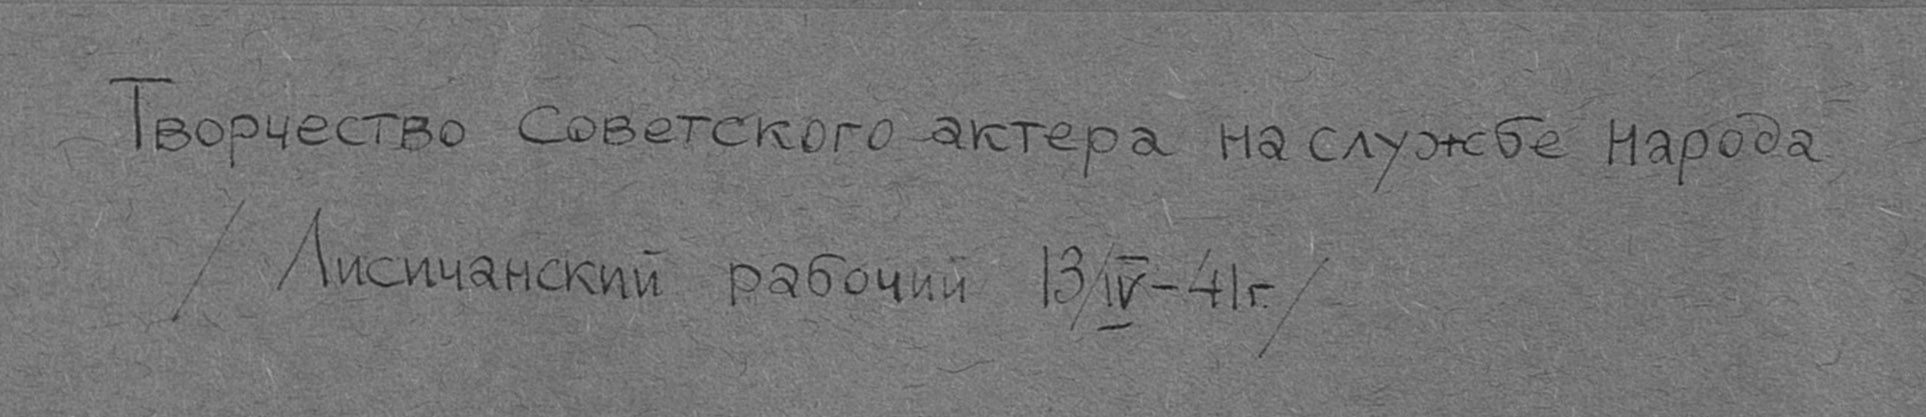 Творчество Советского актера на службе народа
/ Лисичанский рабочий 13/IV-41г./